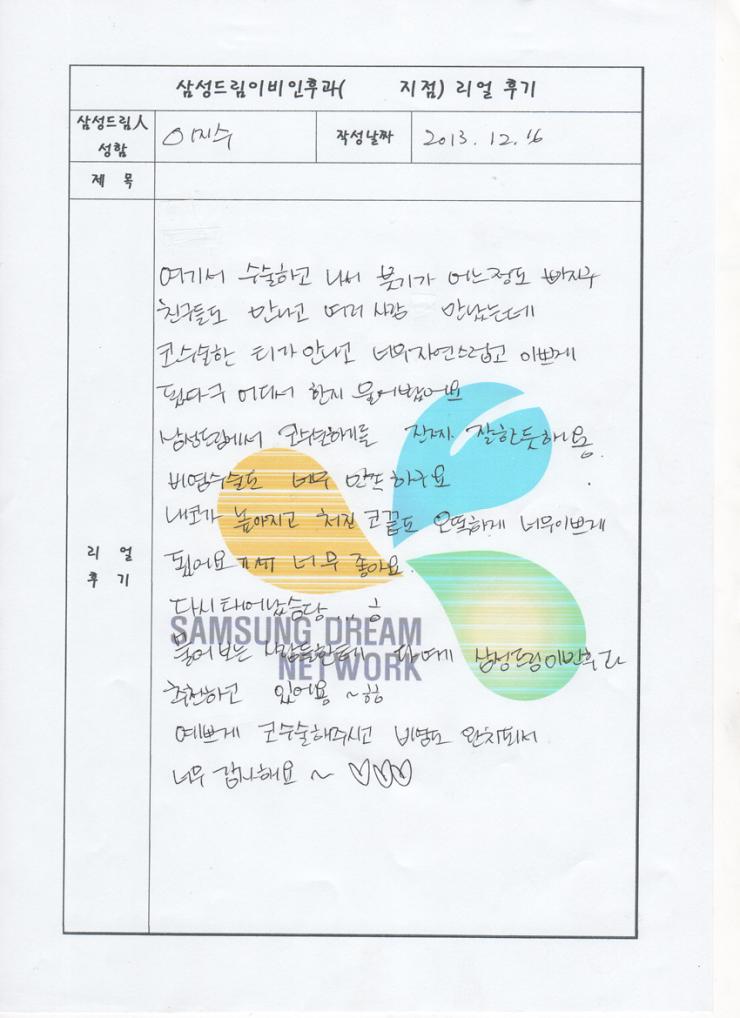 삼성드림이비인후과( 지점) 리얼 후기
삼성드림人
성함
이지수
작성날짜
2013. 12. 16
제 목
리 얼
후 기
여기서 수술하고 나서 붓기가 어느정도 빠지구
친구들도 만나고 여러 사람 만났는데
코수술한 티가 안나고 너무자연스럽고 이쁘게
됐다구 어디서 한지 물어봤어요
삼성드림에서 코수술하게를 진짜 잘한듯해용.
비염수술도 너무 만족하구요
내코가 높아지고 처진 코끝도 오똑하게 너무이쁘게
됬어요 ㅠㅠ 너무 좋아요.
다시태어났슴당... ㅎ
물어보는 사람들한테 다 삼성드림이비인후과
추천하고 있어용 ~ㅎㅎ
예쁘게 코수술해주시고 비염도 완치되서
너무 감사해요 ~ ♡♡♡
SAMSUNG DREAM
NETWORK